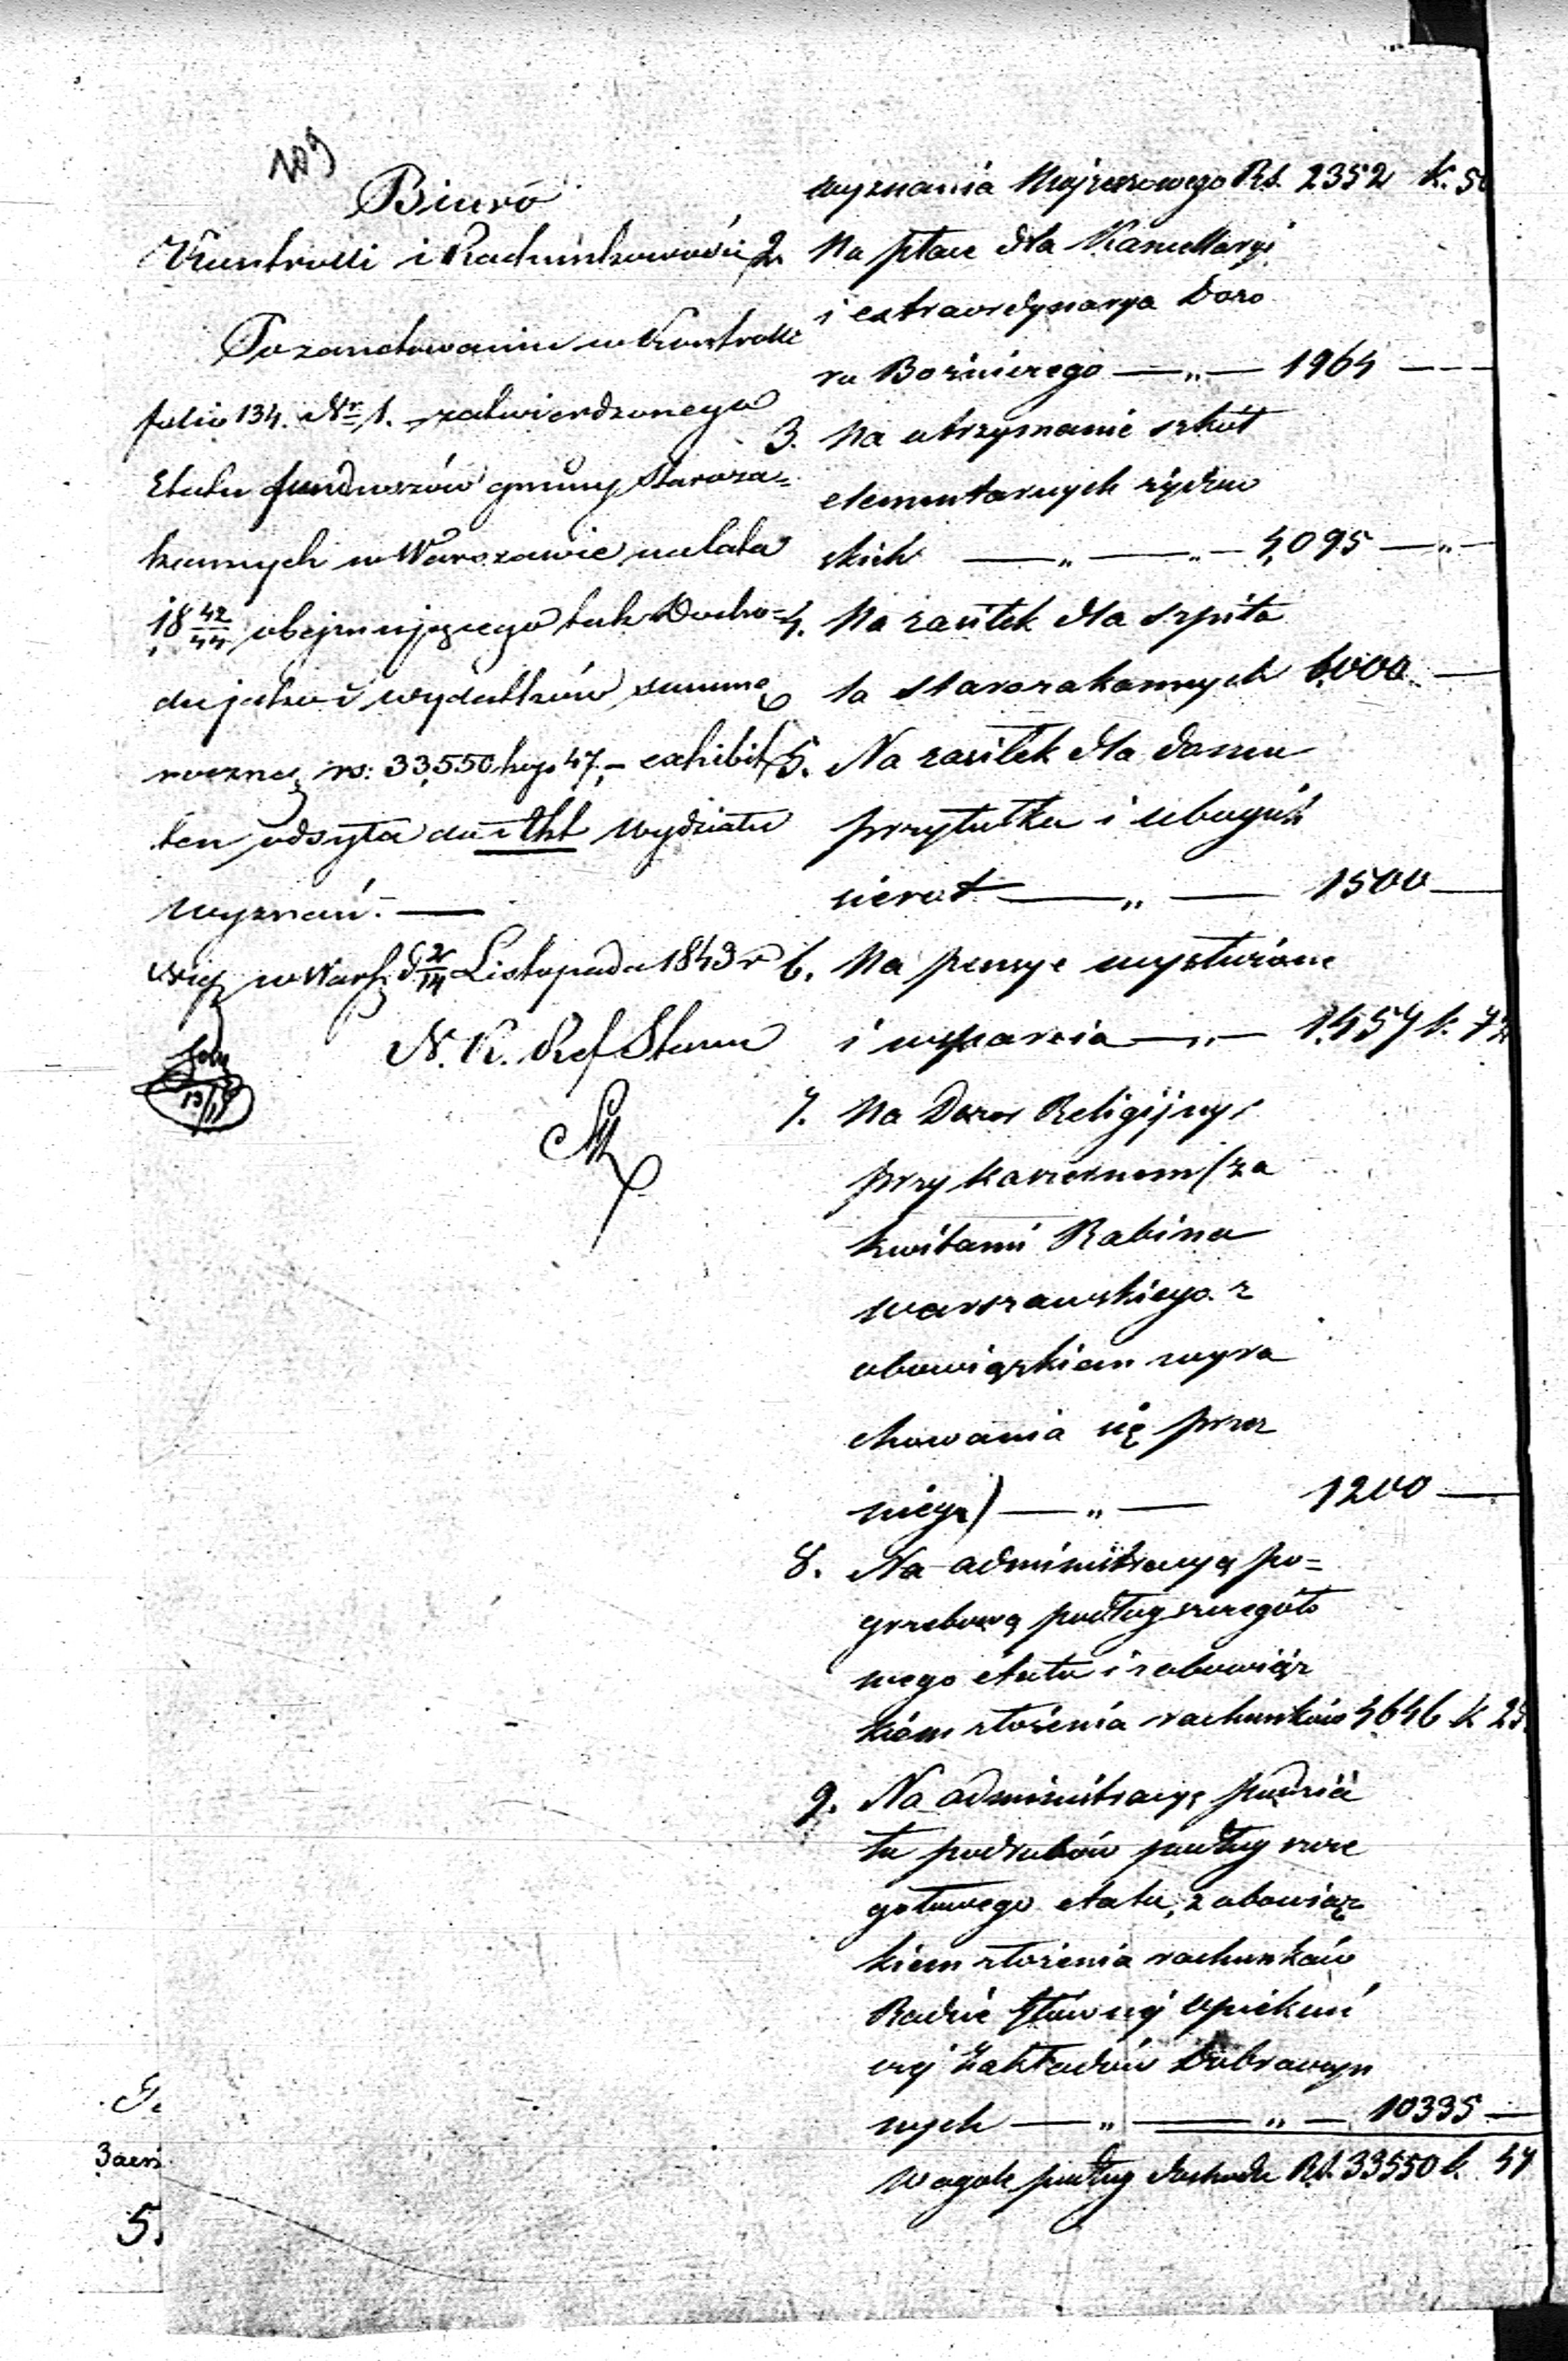 109
Biuro
Kontrolli i Rachunkowości
Po zanotowaniu w Kontrolli
folio 134. Nr 1. zatwierdzonego
Etatu funduszów gminy Staroza=
konnych w Warszawie na lata
18 42/44 obejmującego tak Docho=
du jako i wydatków summę
roczną rs: 33,550 kop. 47.– exhibit
ten odsyła do Wydziału
Wyznań. —
w Warsz. d. 2/14 Listopada 1843 r
N. K.
wyznania Mojżeszowego Rs. 2352 k. 50
2. Na płace dla Kancellaryi
i extraordynarya Dozo
ru Bożniczego — „ — 1964 — —
3. Na utrzymanie szkół
elementarnych żydow
skich — „ — „ — 4,095 — „ —
4. Na zasiłek dla szpita
la starozakonnych 6,000 —
5. Na zasiłek dla domu
przytułku i ubogich
sierot — „ — 1500 —
6. Na pensye wysłużone
i wsparcia — „ — 1,457 k. 72
7. Na Dozor Religijny
przy koszernem (za
kwitami Rabina
warszawskiego z
obowiązkiem wyra
chowania się przez
niego) — „ — 1200 —
8. Na administracyą po=
grzebową podług szczegóło
wego etatu i z obowiąz
kiem złożenia rachunków 4646 k 25
9. Na administracyę
tu podług szcze
gółowego etatu, z obowiąz
kiem złożenia rachunków
Radzie Głównej Opiekuń
czej Zakładów Dobroczyn
nych — „ — „ — 10335 —
W ogóle podług dochodu Rs. 33550 k. 47
5.